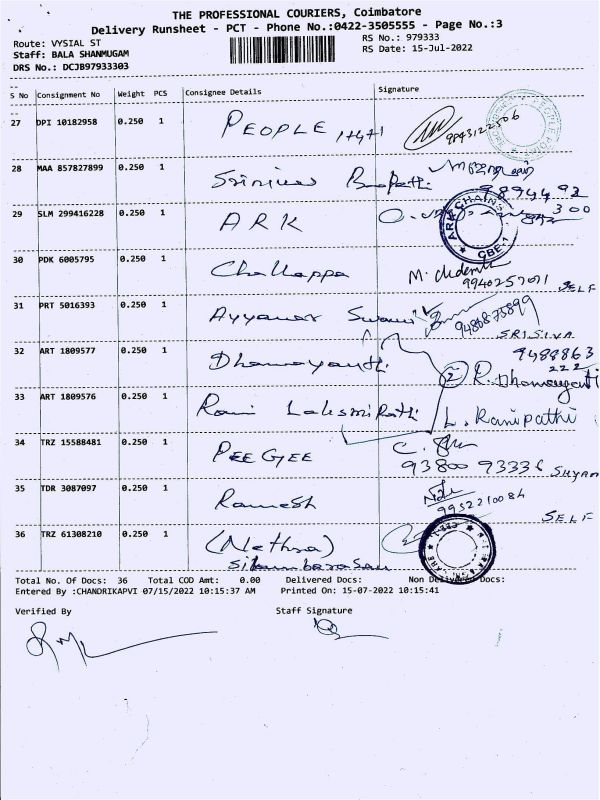 THE PROFESSIONAL COURIERS, Coimbatore
Delivery Runsheet - PCT - Phone No.:0422-3505555 - Page No.:3
Route: VYSIAL ST
RS No.: 979333
Staff: BALA SHANMUGAM
RS Date: 15-Jul-2022
DRS No.: DCJB97933303
S No Consignment No Weight PCS Consignee Details Signature
27 DPI 10182958 0.250 1 PEOPLE
28 MAA 857827899 0.250 1 98944 92
29 SLM 299416228 0.250 1 ARK 300
ARK CHAINS CBE-1
30 PDK 6005795 0.250 1 Challappa 9940257071 SELF
31 PRT 5016393 0.250 1 Ayyanar Swami 9486875899
SRISIVA
32 ART 1809577 0.250 1 Dhamayanthi 9488863
222
② R. Dhamayanti
33 ART 1809576 0.250 1 Rani Laksmi Pathi L. Ranipathi
34 TRZ 15588481 0.250 1 PEE GEE 93800 93336 SHYAM
35 TDR 3087097 0.250 1 Ramesh 9952210084
SELF
36 TRZ 61308210 0.250 1 (Nethra)
Total No. Of Docs: 36 Total COD Amt: 0.00 Delivered Docs: Non Delivered Docs:
Entered By :CHANDRIKAPVI 07/15/2022 10:15:37 AM Printed On: 15-07-2022 10:15:41
Verified By Staff Signature